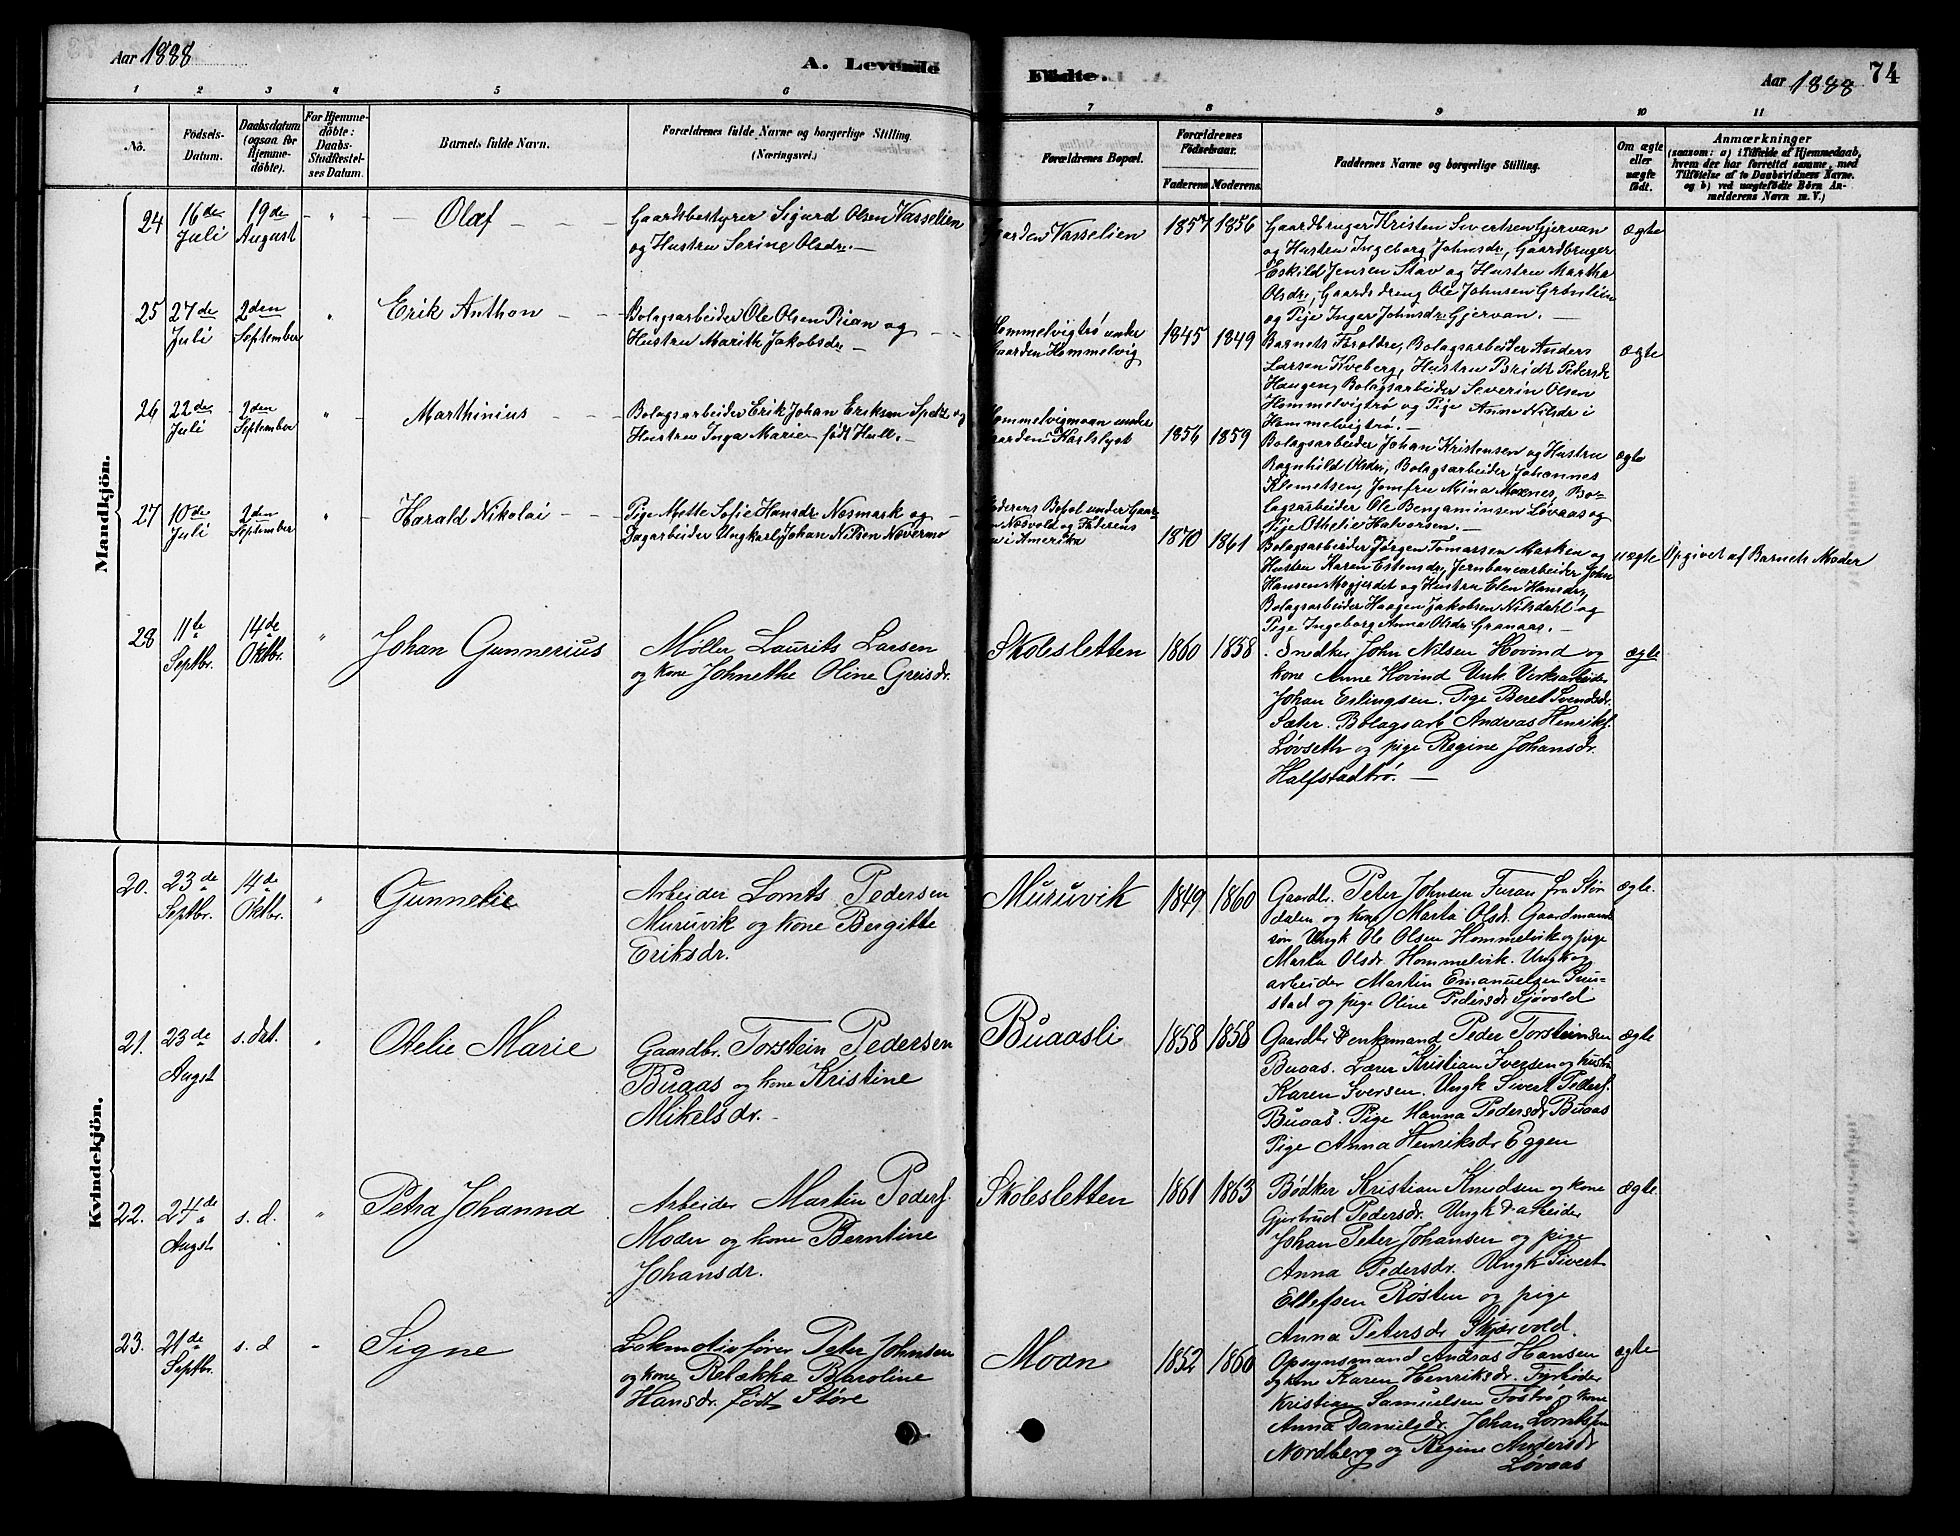 Aar 1888
A. Levende
1 2 3 4 5 6
No.
Födsels-
Datum.
Daabsdatum
(ogsaa for
Hjemme-
döbte).
For Hjemme-
döbte:
Daabs-
Stadfæstel-
ses Datum.
Barnets fulde Navn.
Forældrenes fulde Navne og borgerlige Stilling.
(Næringsvei.)
Mandkjön.
24 16de Juli 19de August " Olaf
Gaardsbestyrer Sigurd Olsen Vasselien
og Hustru Serine Olsdr.
25 27de Juli 2den September " Erik Anthon
Bolagsarbeider Ole Olsen Rian og
Hustru Marith Jakobsdr
26 22de Juli 2den September " Marthinius
Bolagsarbeider Erik Johan Eriksen Spets og
Hustru Inga Marie født Hull.
27 10de Juli 2den September " Harald Nikolai
Pige Mette Sofie Hansdr Nosmark og
Dagarbeider Ungkarl Johan Nilsen Nævermo
28 11te Septbr. 14de Oktbr. " Johan Gunnerius
Møller Laurits Larsen
og kone Johnethe Oline Greisdr.
Kvindekjön.
20. 23de Septbr. 14de Oktbr. " Gunnelie
Arbeider Lornts Pedersen
Muruvik og kone Bergitte
Eriksdr.
21. 23de Augst s. dat. " Otelie Marie
Gaardbr. Torstein Pedersen
Buaas og kone Kristine
Mikelsdr.
22. 24de Augst s. d. " Petra Johanna
Arbeider Martin Peders.
Moder og kone Berntine
Johansdr.
23. 21de Septbr. s. d " Signe
Lokmotivfører Peter Johnsen
og kone Rebækka Baroline
Hansdr. født Støre
Födte.
Aar 1888
74
7 8 9 10 11
Forældrenes Bopæl.
Forældrenes
Födselsaar.
Faderens. Moderens.
Faddernes Navne og borgerlige Stilling.
Om ægte
eller
uægte
födt.
Anmærkninger
(saasom: a) i Tilfælde af Hjemmedaab,
hvem der har forrettet samme, med
Tilföielse af to Daabsvidners Navne.
og b) ved uægtefödte Börn An-
melderens Navn m. V.)
Gaarden Vasselien 1857 1856
Gaardbruger Kristen Sivertsen Gjervan
og Hustru Ingeborg Johnsdr, Gaardbruger
Eskild Jensen Stav og Hustru Martha
Olsdr, Gaardsdreng Ole Johnsen Grønlien
og Pige Inger Johnsdr Gjervan.
ægte
Hommelvigtrø under
Gaarden Hommelvig 1845 1849
Barnets Forældre, Bolagsarbeider Anders
Larsen Kveberg, Hustru Bridt Pedersdr
Haugen, Bolagsarbeider Severin Olsen
Hommelvigtrø og Pige Anne Nilsdr i
Hommelvigtrø.
ægte
Hommelvigmoan under
Gaarden Karlslyst 1856 1859
Bolagsarbeider Johan Kristensen og Hustru
Ragnhild Olsdr, Bolagsarbeider Johannes
Klemetsen, Jomfru Mina Moxnes, Bo-
lagsarbeider Ole Benjaminsen Løvaas og
Pige Othelie Halvorsen.
ægte
Moderens Bopæl under Gaar-
den Næsvold og Faderens
i Amerika 1870 1861
Bolagsarbeider Jørgen Tomassen Marken og
Hustru Karen Estensdr, Jernbanearbeider John
Hansen Mogjerdet og Hustru Elen Hansdr,
Bolagsarbeider Haagen Jakobsen Nilsdahl og
Pige Ingeborg Anna Olsdr Granaas.
uægte
Opgivet af Barnets Moder
Skolesletten 1860 1858
Snedker John Nilsen Hovind og
kone Anne Hovind Unk. Verksarbeider
Johan Erlingsen. Pige Beret Svendsdr.
Sæter. Bolagsarb Andreas Henriks.
Løvseth og pige Regine Johansdr.
Halfstadtrø.
ægte
Muruvik 1849 1860
Gaardbr. Peter Johnsen Furan fra Stør
dalen og kone Marta Olsdr. Gaardmand
søn Ungk Ole Olsen Hommelvik og pige
Marta Olsdr. Hommelvik. Ungk og
arbeider Martin Emanuelsen Pruu-
stad og pige Oline Pedersdr Sjøvold
ægte.
Buaasli 1858 1858
Gaardbr & enkemand Peder Torsteinsen
Buaas. Lærer Kristian Iversen og hustru
Karen Iversen. Ungk Sivert Peders.
Buaas. Pige Hanna Pedersdr Buaas
Pige Anna Henriksdr Eggen
ægte
Skolesletten 1861 1863
Bødker Kristian Knudsen og kone
Gjertrud Pedersdr. Ungk & arbeider
Johan Peter Johansen og pige
Anna Pedersdr. Ungk Sivert
Ellefsen Røsten og pige
Anna Petersdr Skjervold.
ægte.
Moan 1852 1860
Opsynsmand Andras Hansen
og kone Karen Henriksdr. Fyrbøder
Kristian Samuelsen Fostrø og kone
Anna Danielsdr. Johan Lorntsen
Nordberg og Regine Andersdr
Løvaas
ægte